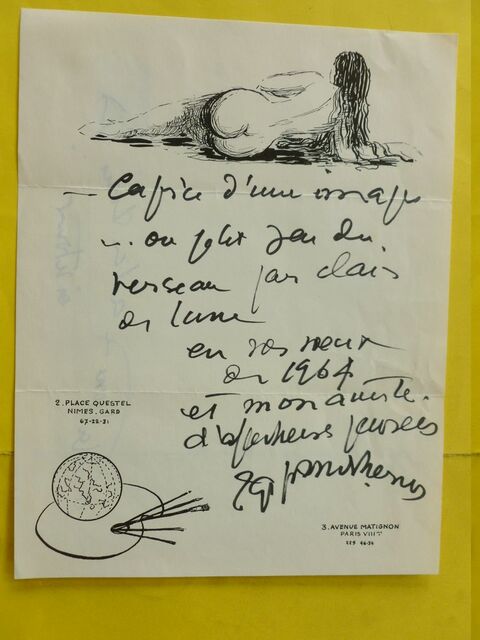 — Caprice d'une image
... ou Jeu du
verseau par clair
de lune
en vos
de 1964
et mon
d'affectueuses pensées
2. PLACE QUESTEL
NIMES. GARD
67-22-31
3. AVENUE MATIGNON
PARIS VIIIᵉ